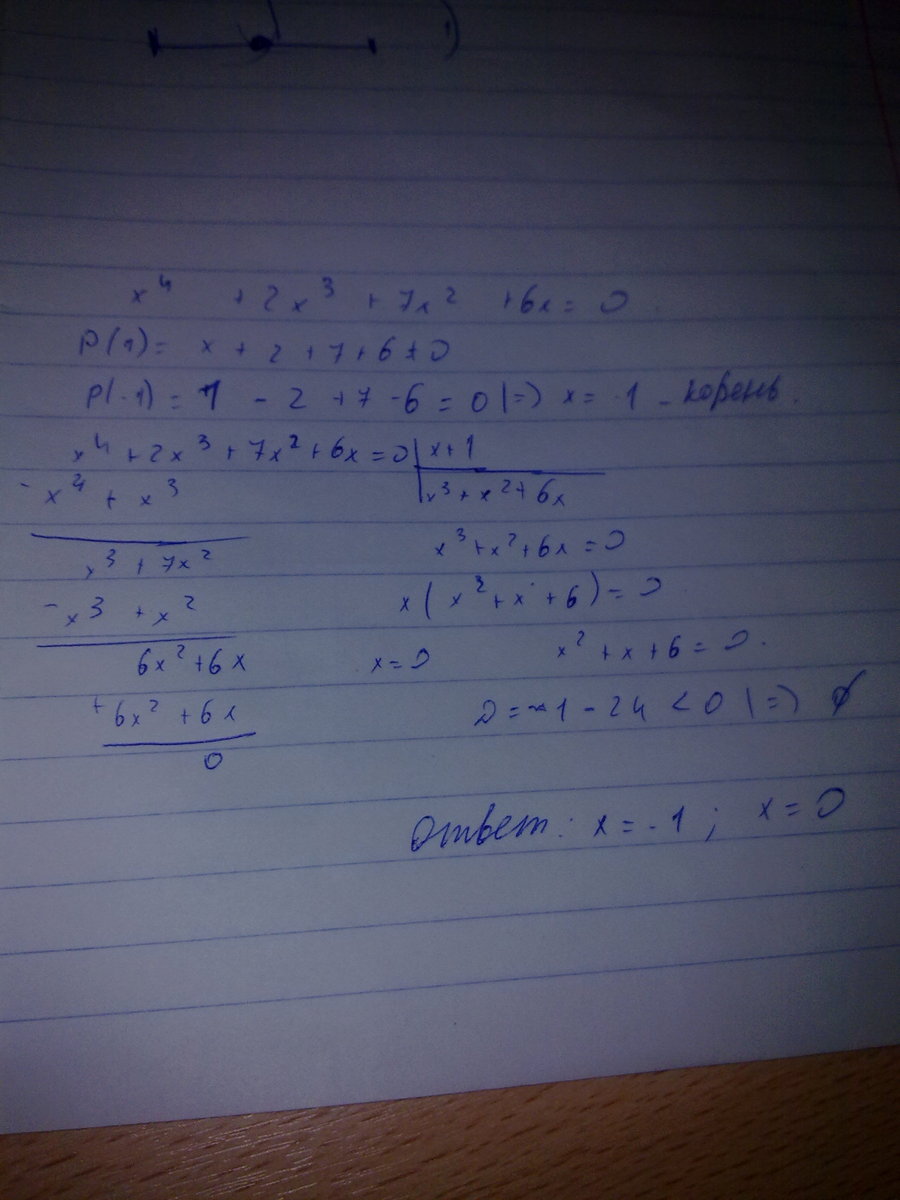 1)
x⁴ + 2x³ + 7x² + 6x = 0
P(1) = x + 2 + 7 + 6 ≠ 0
P(-1) = 1 - 2 + 7 - 6 = 0 |=> x = -1 - корень.
x⁴ + 2x³ + 7x² + 6x = 0 | x + 1
- x⁴ + x³
x³ + x² + 6x
x³ + 7x²
x³ + x² + 6x = 0
- x³ + x²
x(x² + x + 6) = 0
6x² + 6x
x = 0
x² + x + 6 = 0.
+ 6x² + 6x
D = -1 - 24 < 0 |=> ∅
0
Ответ: x = -1; x = 0